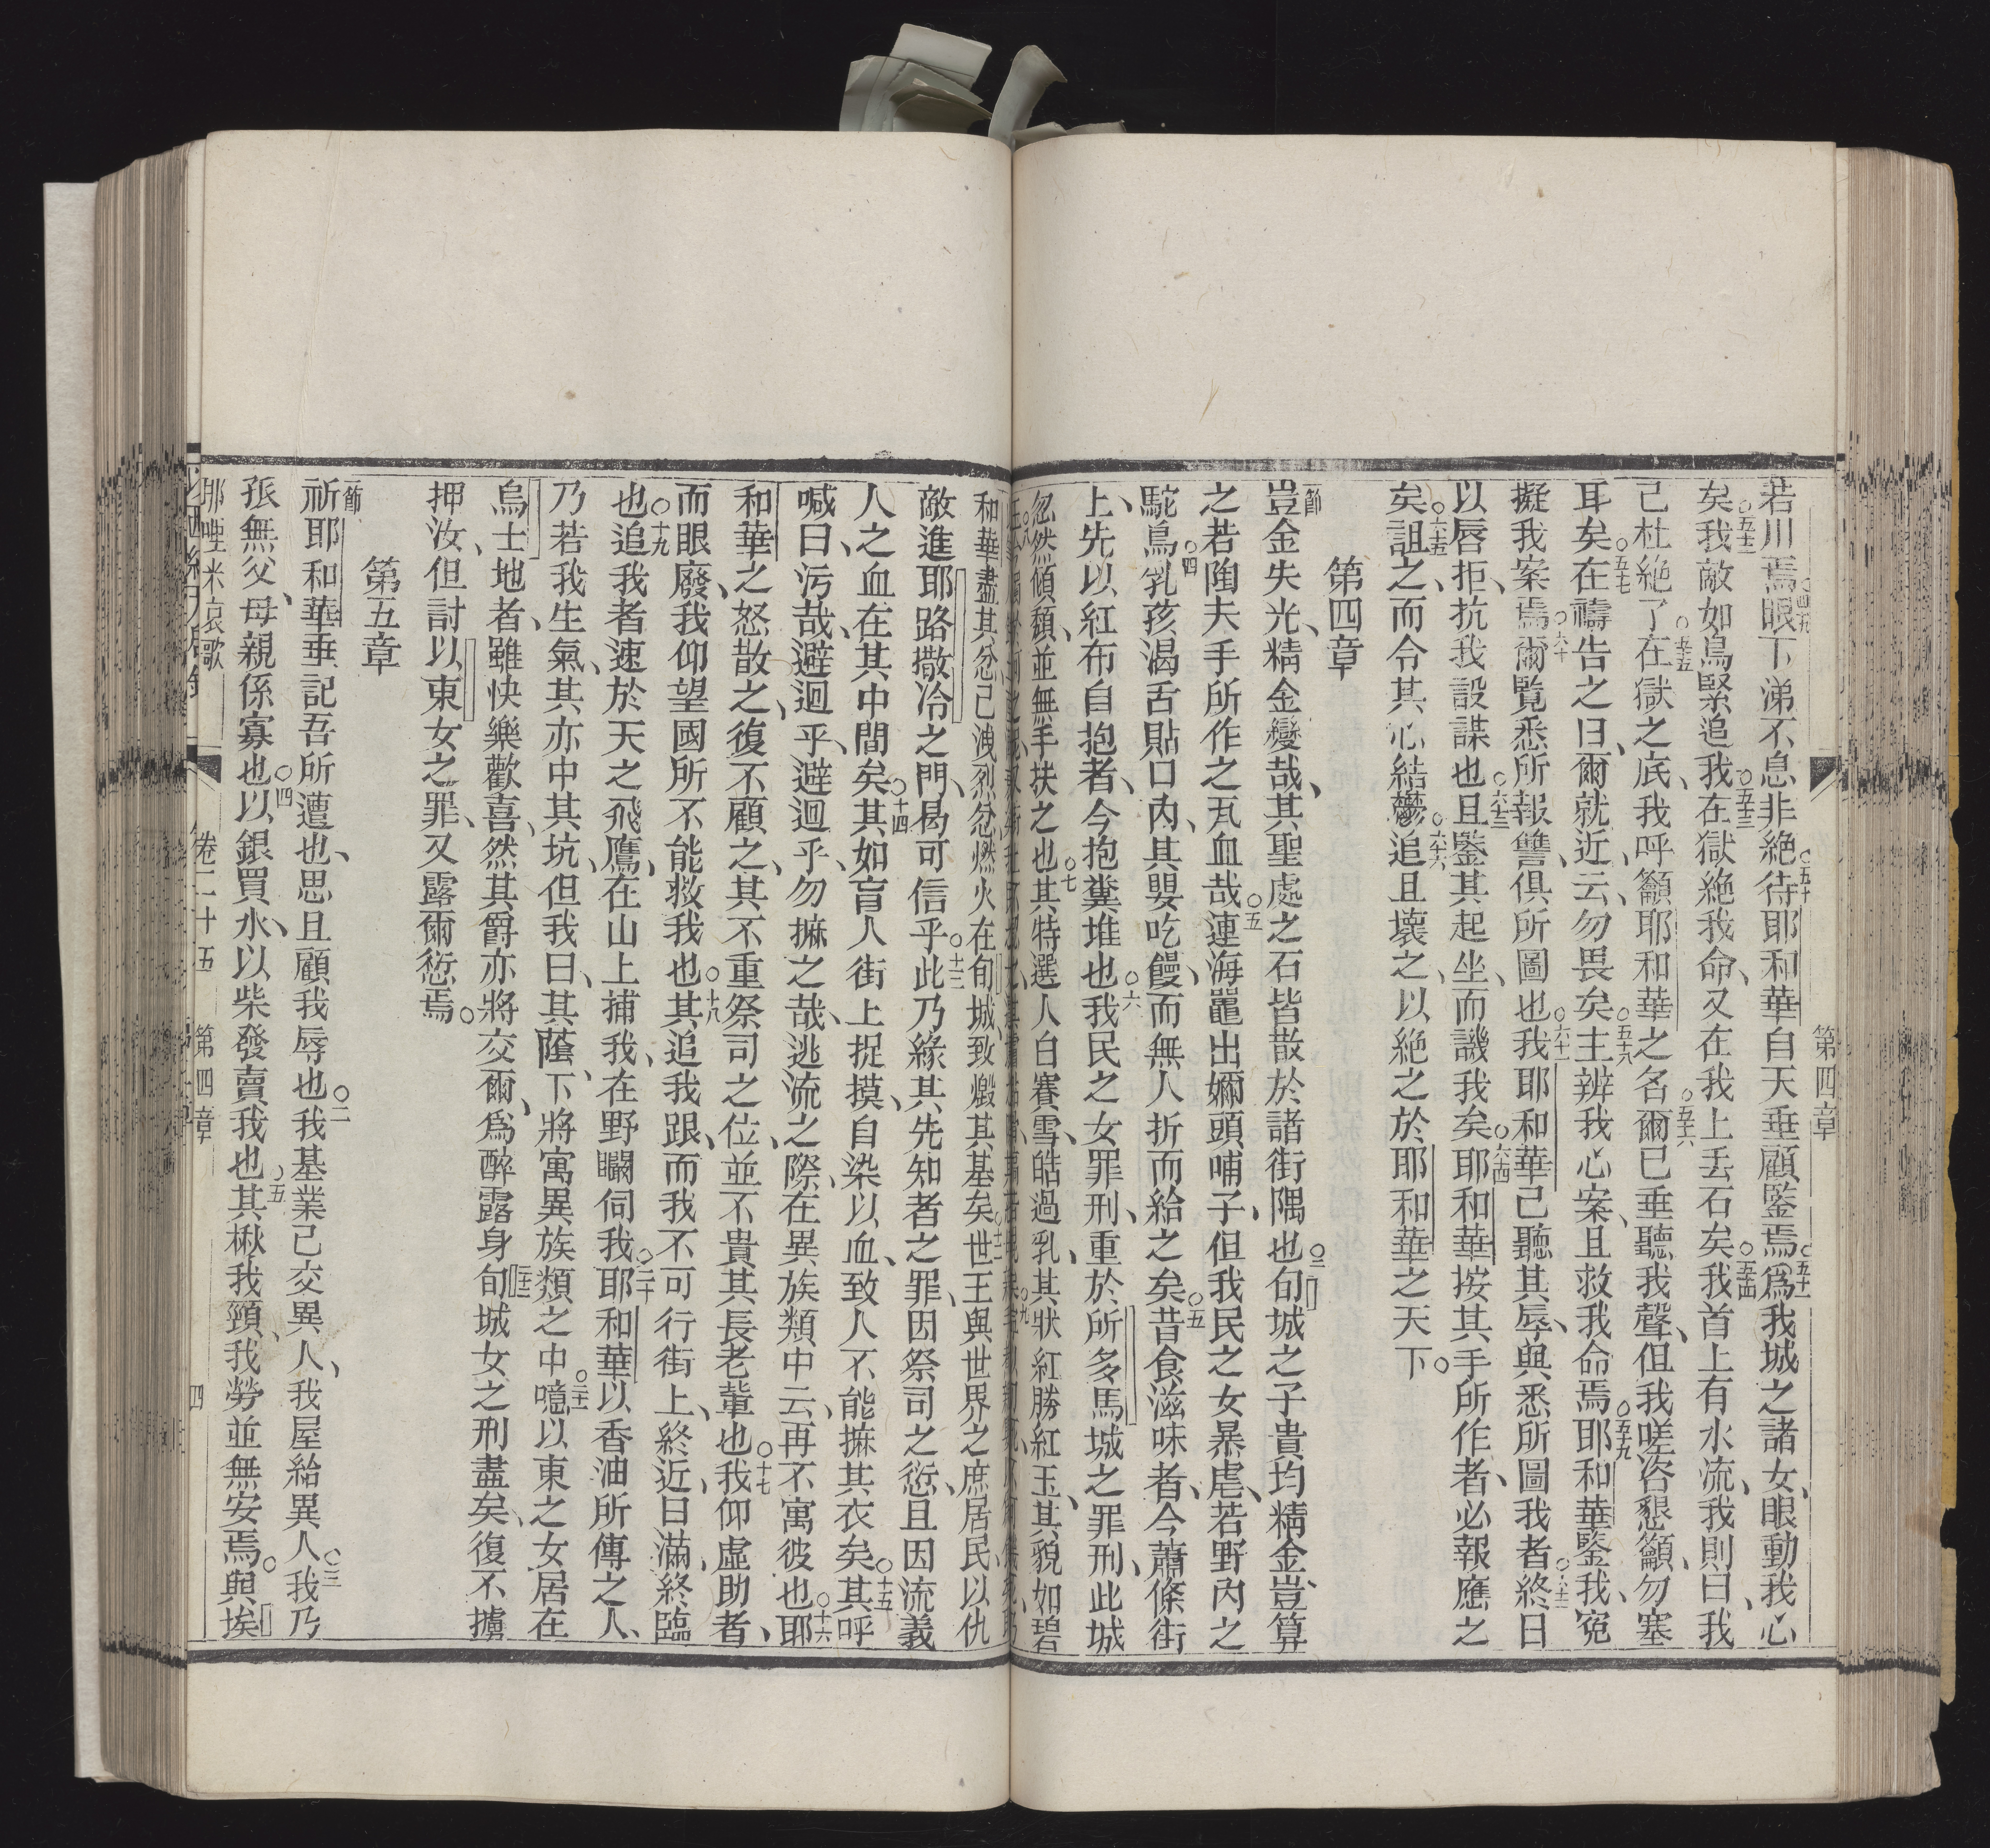 第四章
若川焉眼下涕不息非絶待耶和華自天垂顧鑒焉爲我城之諸女眼動我心
矣我敵如鳥緊追我在獄絶我命又在我上丢石矣我首上有水流我則曰我
己杜絶了在獄之底我呼籲耶和華之名爾已垂聽我聲但我嗟咨懇籲勿塞
耳矣在禱告之曰爾就近云勿畏矣主辨我心案且救我命焉耶和華鑒我寃
擬我案焉爾覧悉所報讐俱所圖也我耶和華己聽其辱與悉所圖我者終日
以唇拒抗我設謀也且鑒其起坐而譏我矣耶和華按其手所作者必報應之
矣詛之而令其心結鬱追且壞之以絶之於耶和華之天下
第四章
節豈金失光精金變哉其聖處之石皆散於諸街隅也旬城之子貴均精金豈算
之若陶夫手所作之瓦血哉連海鼉出嬭頭哺子但我民之女暴虐若野內之
駝鳥乳孩渴舌貼口內其嬰吃饅而無人折而給之矣昔食滋味者今蕭條街
上先以紅布自抱者今抱糞堆也我民之女罪刑重於所多馬城之罪刑此城
忽然傾頹並無手扶之也其特選人白賽雪皓過乳其狀紅勝紅玉其貌如碧
和華盡其忿己洩烈忿燃火在旬城致燬其基矣世王與世界之庶居民以仇
敵進耶路撒冷之門曷可信乎此乃緣其先知者之罪因祭司之愆且因流義
人之血在其中間矣其如盲人街上捉摸自染以血致人不能摭其衣矣其呼
喊曰污哉避迴乎避迴乎勿摭之哉逃流之際在異族類中云再不寓彼也耶
和華之怒散之復不顧之其不重祭司之位並不貴其長老輩也我仰虛助者
而眼廢我仰望國所不能救我也其追我跟而我不可行街上終近日滿終臨
也追我者速於天之飛鷹在山上捕我在野矙伺我耶和華以香油所傳之人
乃若我生氣其亦中其坑但我曰其蔭下將寓異族類之中噫以東之女居在
烏士地者雖快樂歡喜然其爵亦將交爾爲醉露身旬城女之刑盡矣復不擄
押汝但討以東女之罪又露爾愆焉
第五章
節祈耶和華垂記吾所遭也思且顧我辱也我基業己交異人我屋給異人我乃
孤無父母親係寡也以銀買水以柴發賣我也其楸我頸我勞並無安焉與埃
耶哩米哀歌 卷二十五 第四章 四